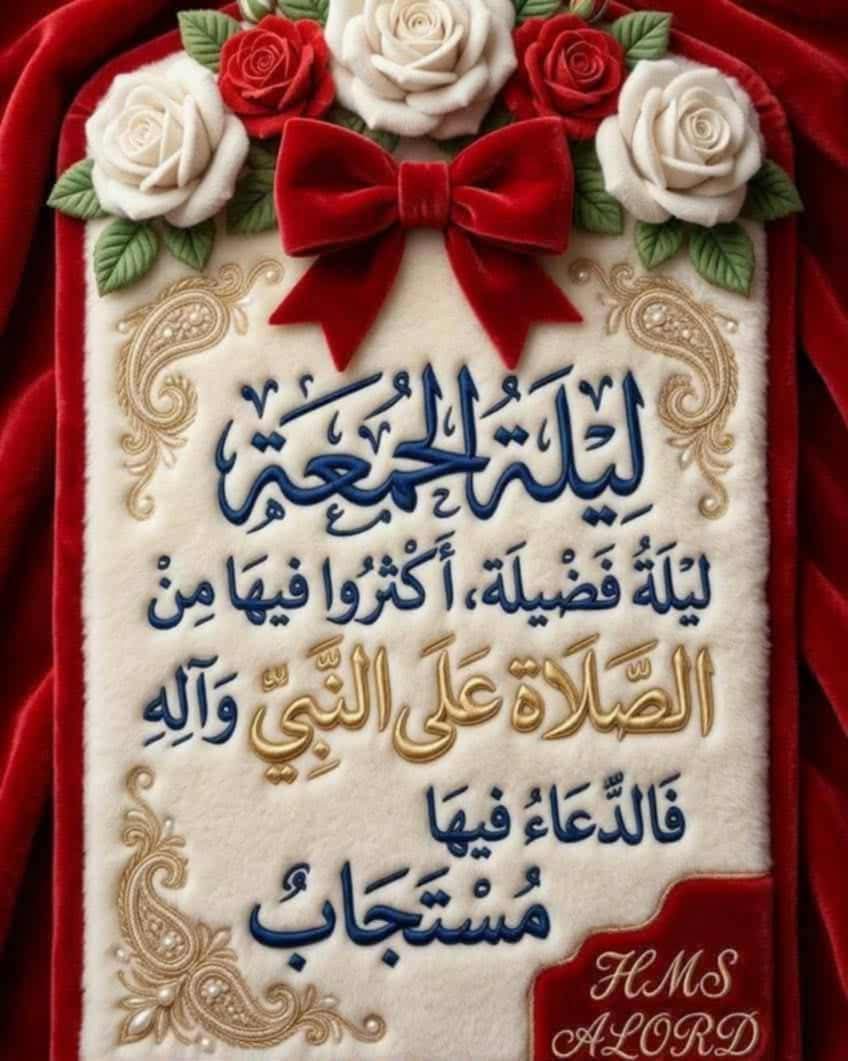 لِيلَةُ الجُمعَة
ليْلَةُ فَضْيلَة، أَكْثرُوا فيهَا مِنْ
الصَّلَاة عَلَى النَّبِيّ وَآلِهِ
فَالدُّعَاءُ فيهَا
مُسْتَجَابٌ
HMS
ALORD